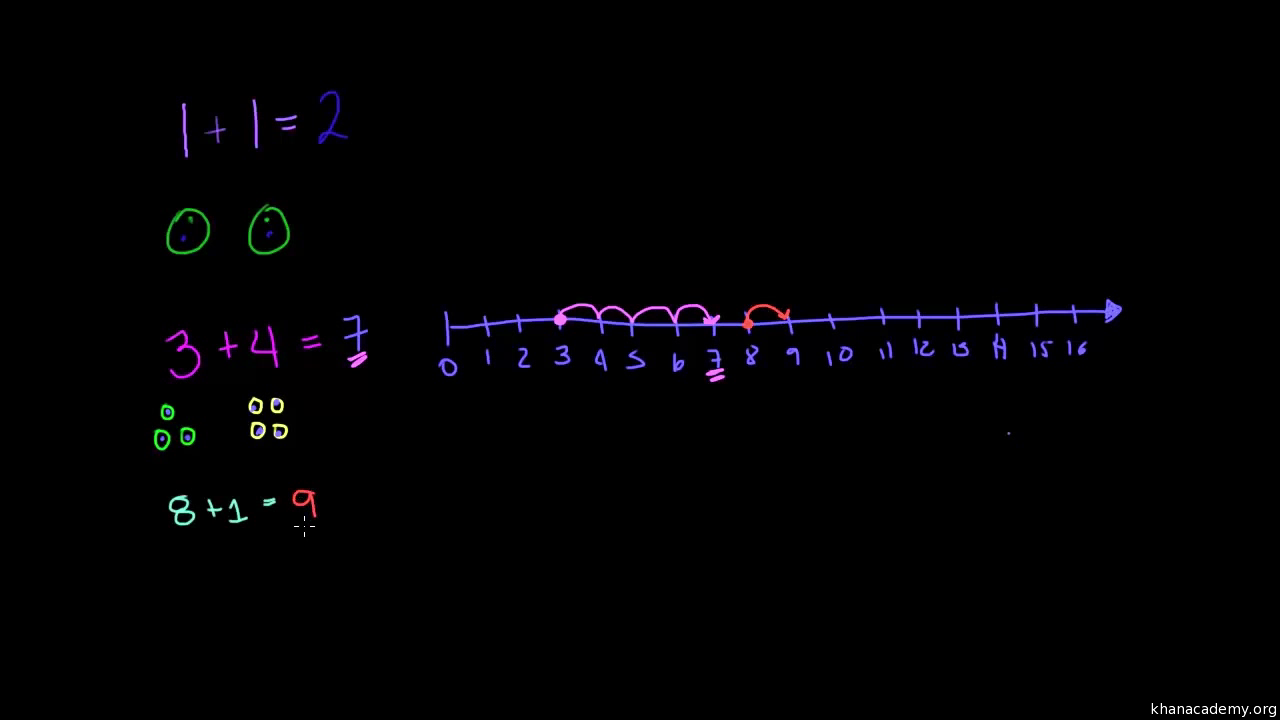 1 + 1 = 2
3 + 4 = 7
0 1 2 3 4 5 6 7 8 9 10 11 12 13 14 15 16
8 + 1 = 9
khanacademy.org